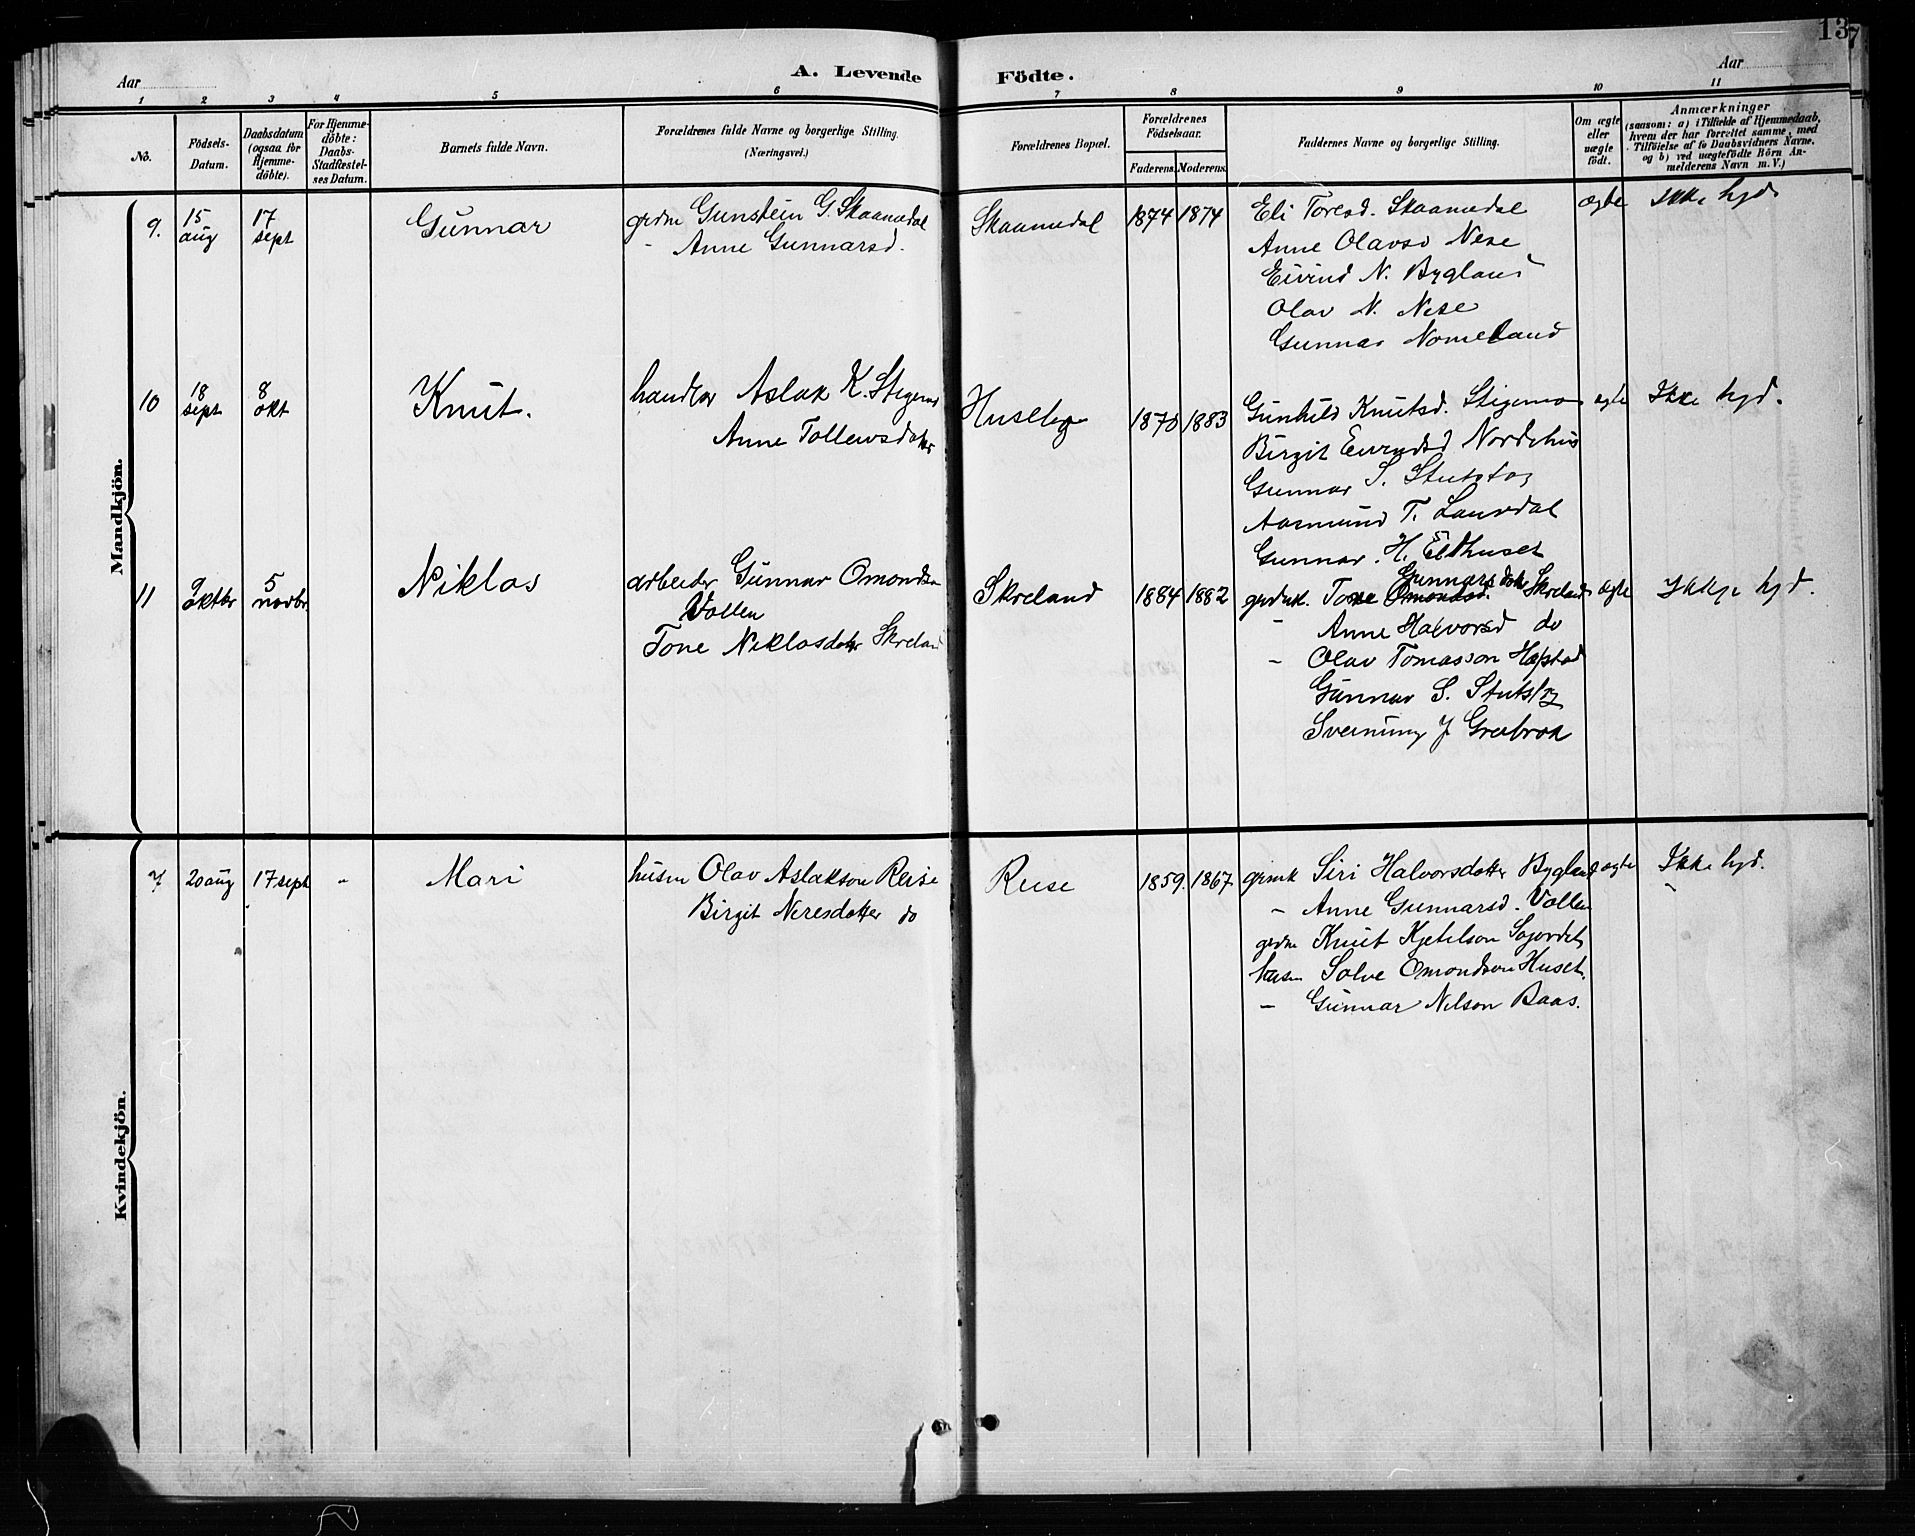 137
Aar
A. Levende Födte.
Aar
1 2 3 4 5 6 7 8 9 10 11
No.
Födsels-Datum.
Daabsdatum (ogsaa for Hjemmedöbte).
For Hjemmedöbte: Daabs-Stadfæstelses Datum.
Barnets fulde Navn.
Forældrenes fulde Navne og borgerlige Stilling.
(Næringsvei.)
Forældrenes Bopæl.
Forældrenes Födselsaar.
Faderens. Moderens.
Faddernes Navne og borgerlige Stilling.
Om ægte eller uægte födt.
Anmærkninger
(saasom: a) i Tilfælde af Hjemmedaab, hvem der har forrettet samme, med Tilföielse af to Daabsvidners Navne, og b) ved uægtefödte Börn Anmelderens Navn m. V.)
Mandkjön.
9. 15 aug 17 sept Gunnar grdm Gunstein G. Skaamedal Skaamedal 1874 1874 Eli Toresd. Skaamedal ægte Ikke hjd
- Anne Gunnarsd. Anne Olavsd Nese
Eivind N. Bygland
Olav N. Nese
Gunnar Nomeland
10 18 sept 8 okt Knut. handler Aslak K. Stigemo 1883 Gunhild Knutsd. Stigemo ægte Ikke hjd.
Anne Tollevsdatter Birgit Eivindsd Nordehus
Gunnar S.
Aasmund T. Lauvdal
Gunnar H. Eldhuset
11 oktbr 5 novbr Niklas arbeider Gunnar Omondsen Skreland 1884 1882 Tone Omondsd. Gunnars datter Skreland ægte Ikkje hjd.
Vollen - Anne Halvorsd do
Tone Niklasdatter Skreland - Olav Tomasson Hæstad
Gunnar S.
Sveinung J Greibrok
Kvindekjön.
7 20 aug 17 sept - Mari husm Olav Aslakson Reise Reise 1859. 1867 Siri Halvorsdatter Bygland ægte Ikke hjd.
Birgit Neresdotter do - Anne Gunnarsd. Vollen -
grdm Knut Kjetilson
husm Salve Omondson Huset.
- Gunnar Nilson Baas.